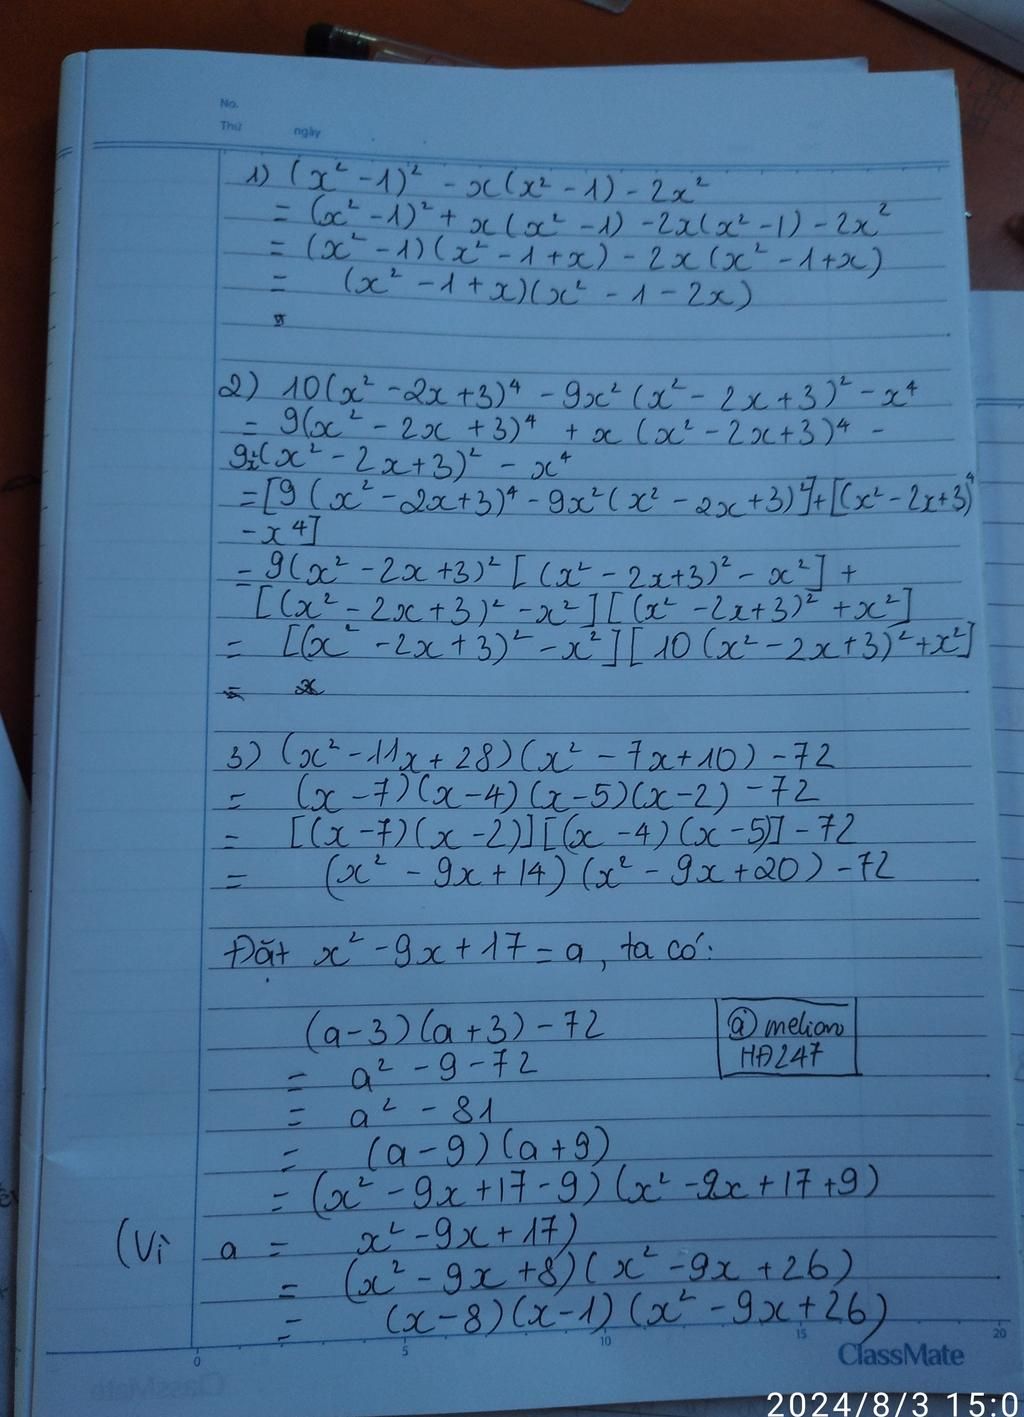 No.
Thứ ngày
1) (x² - 1)² - x(x² - 1) - 2x²
= (x² - 1)² + x(x² - 1) - 2x(x² - 1) - 2x²
= (x² - 1)(x² - 1 + x) - 2x(x² - 1 + x)
= (x² - 1 + x)(x² - 1 - 2x)
2) 10(x² - 2x + 3)⁴ - 9x²(x² - 2x + 3)² - x⁴
= 9(x² - 2x + 3)⁴ + x(x² - 2x + 3)⁴ -
9x²(x² - 2x + 3)² - x⁴
= [9(x² - 2x + 3)⁴ - 9x²(x² - 2x + 3)²] + [(x² - 2x + 3)⁴
- x⁴]
= 9(x² - 2x + 3)² [(x² - 2x + 3)² - x²] +
[(x² - 2x + 3)² - x²][(x² - 2x + 3)² + x²]
= [(x² - 2x + 3)² - x²][10(x² - 2x + 3)² + x²]
=
3) (x² - 11x + 28)(x² - 7x + 10) - 72
= (x - 7)(x - 4)(x - 5)(x - 2) - 72
= [(x - 7)(x - 2)][(x - 4)(x - 5)] - 72
= (x² - 9x + 14)(x² - 9x + 20) - 72
Đặt x² - 9x + 17 = a, ta có:
(a - 3)(a + 3) - 72
= a² - 9 - 72
= a² - 81
= (a - 9)(a + 9)
= (x² - 9x + 17 - 9)(x² - 9x + 17 + 9)
(Vì a = x² - 9x + 17)
= (x² - 9x + 8)(x² - 9x + 26)
= (x - 8)(x - 1)(x² - 9x + 26)
@melion
HĐ247
0 5 10 15 20
ClassMate
2024/8/3 15:0